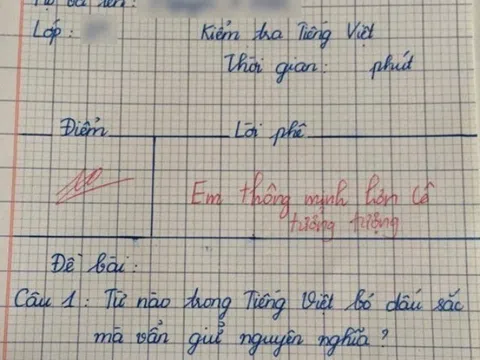 Họ và tên :
Lớp :
Kiểm tra Tiếng Việt
Thời gian : phút
Điểm
Lời phê
10
Em thông minh hơn cô
tưởng tượng
Đề bài :
Câu 1 : Từ nào trong Tiếng Việt bỏ dấu sắc
mà vẫn giữ nguyên nghĩa ?